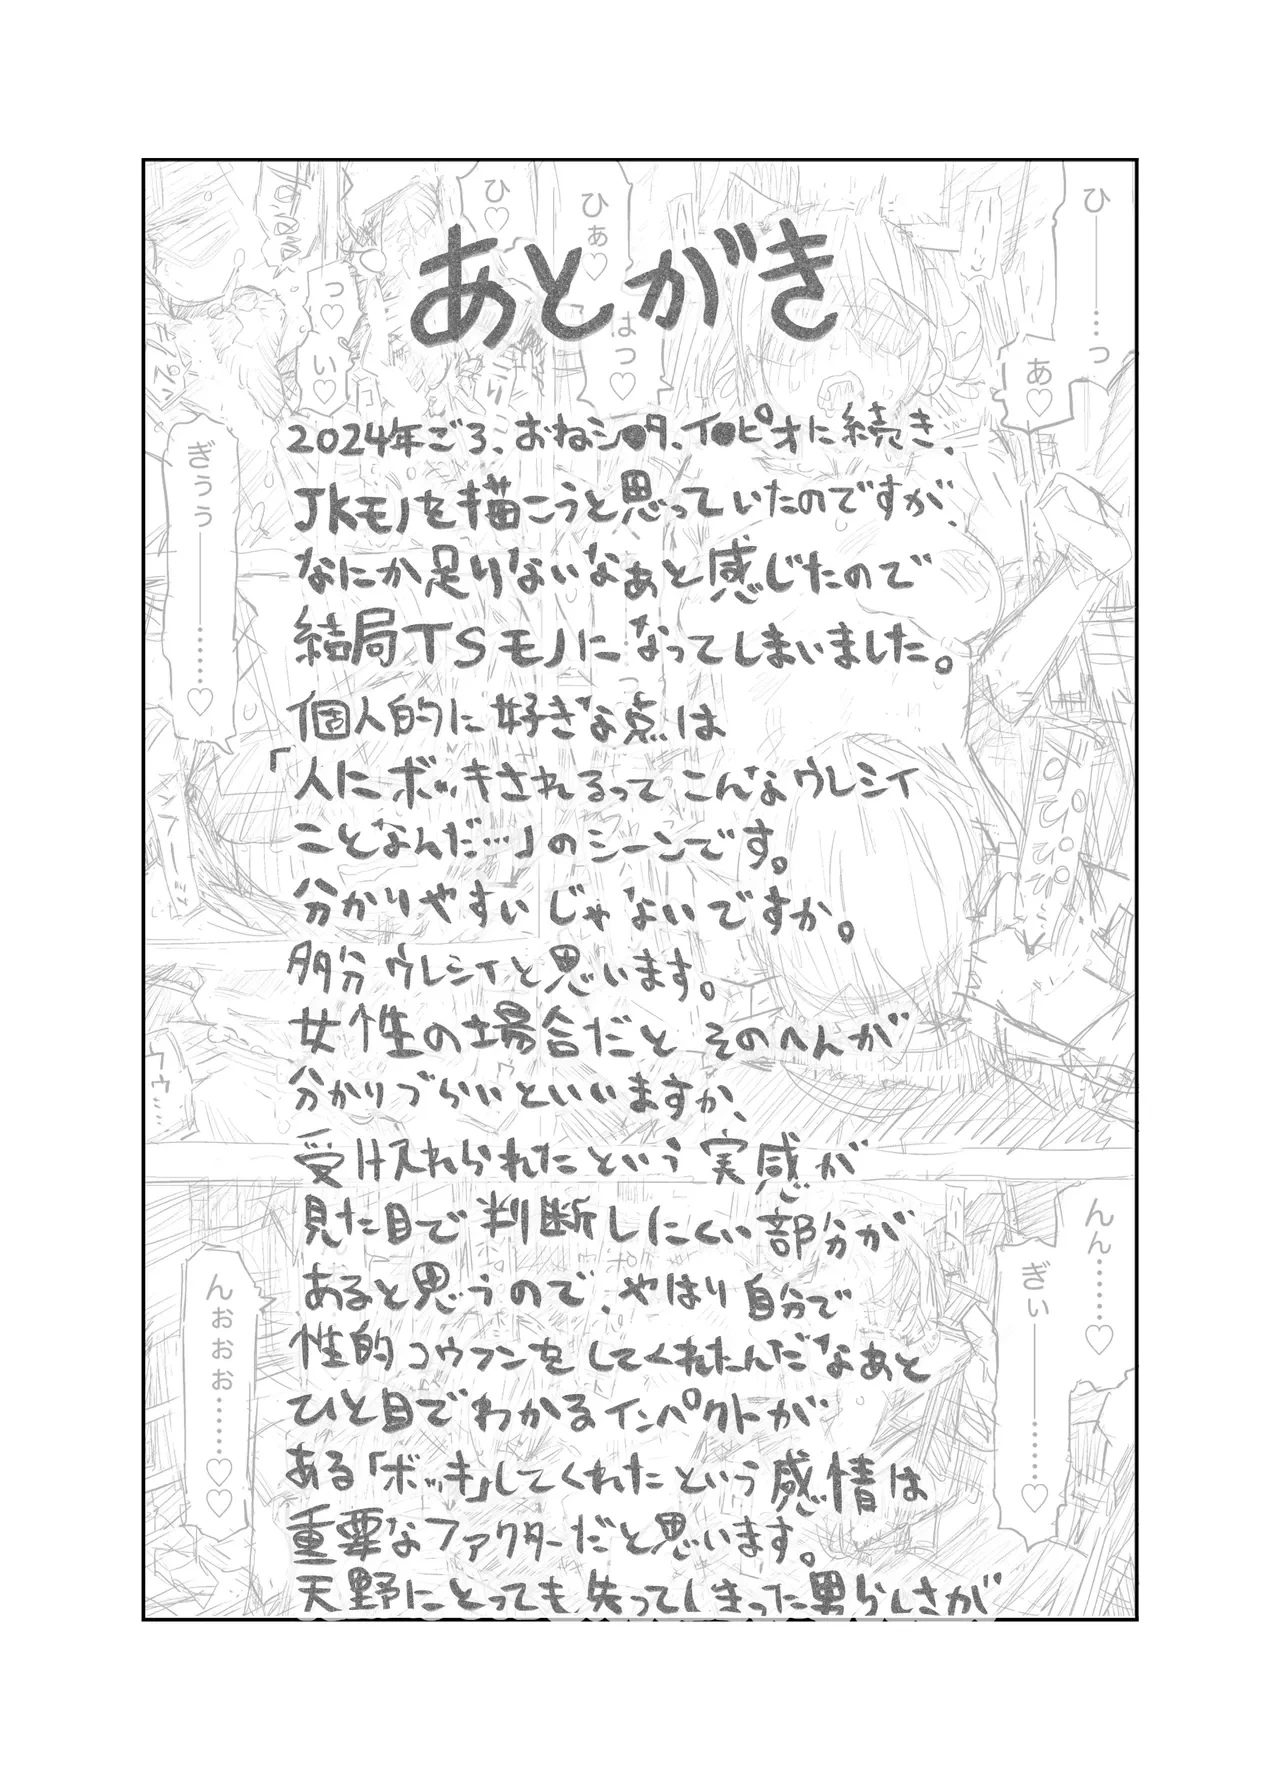 あとがき
2024年ごろ、おねシ●タ、イ●ピオに続き、
JKモノを描こうと思っていたのですが、
なにか足りないなぁと感じたので
結局TSモノになってしまいました。
個人的に好きな点は
「人にボッキされるってこんなウレシイ
ことなんだ…」のシーンです。
分かりやすいじゃないですか。
多分ウレシイと思います。
女性の場合だと そのへんが
分かりづらいといいますか、
受け入れられたという実感が
見た目で判断しにくい部分が
あると思うので、やはり自分で
性的コウフンをしてくれたんだなぁと
ひと目でわかるインパクトが
ある「ボッキ」してくれたという感情は
重要なファクターだと思います。
天野にとっても失ってしまった男らしさが